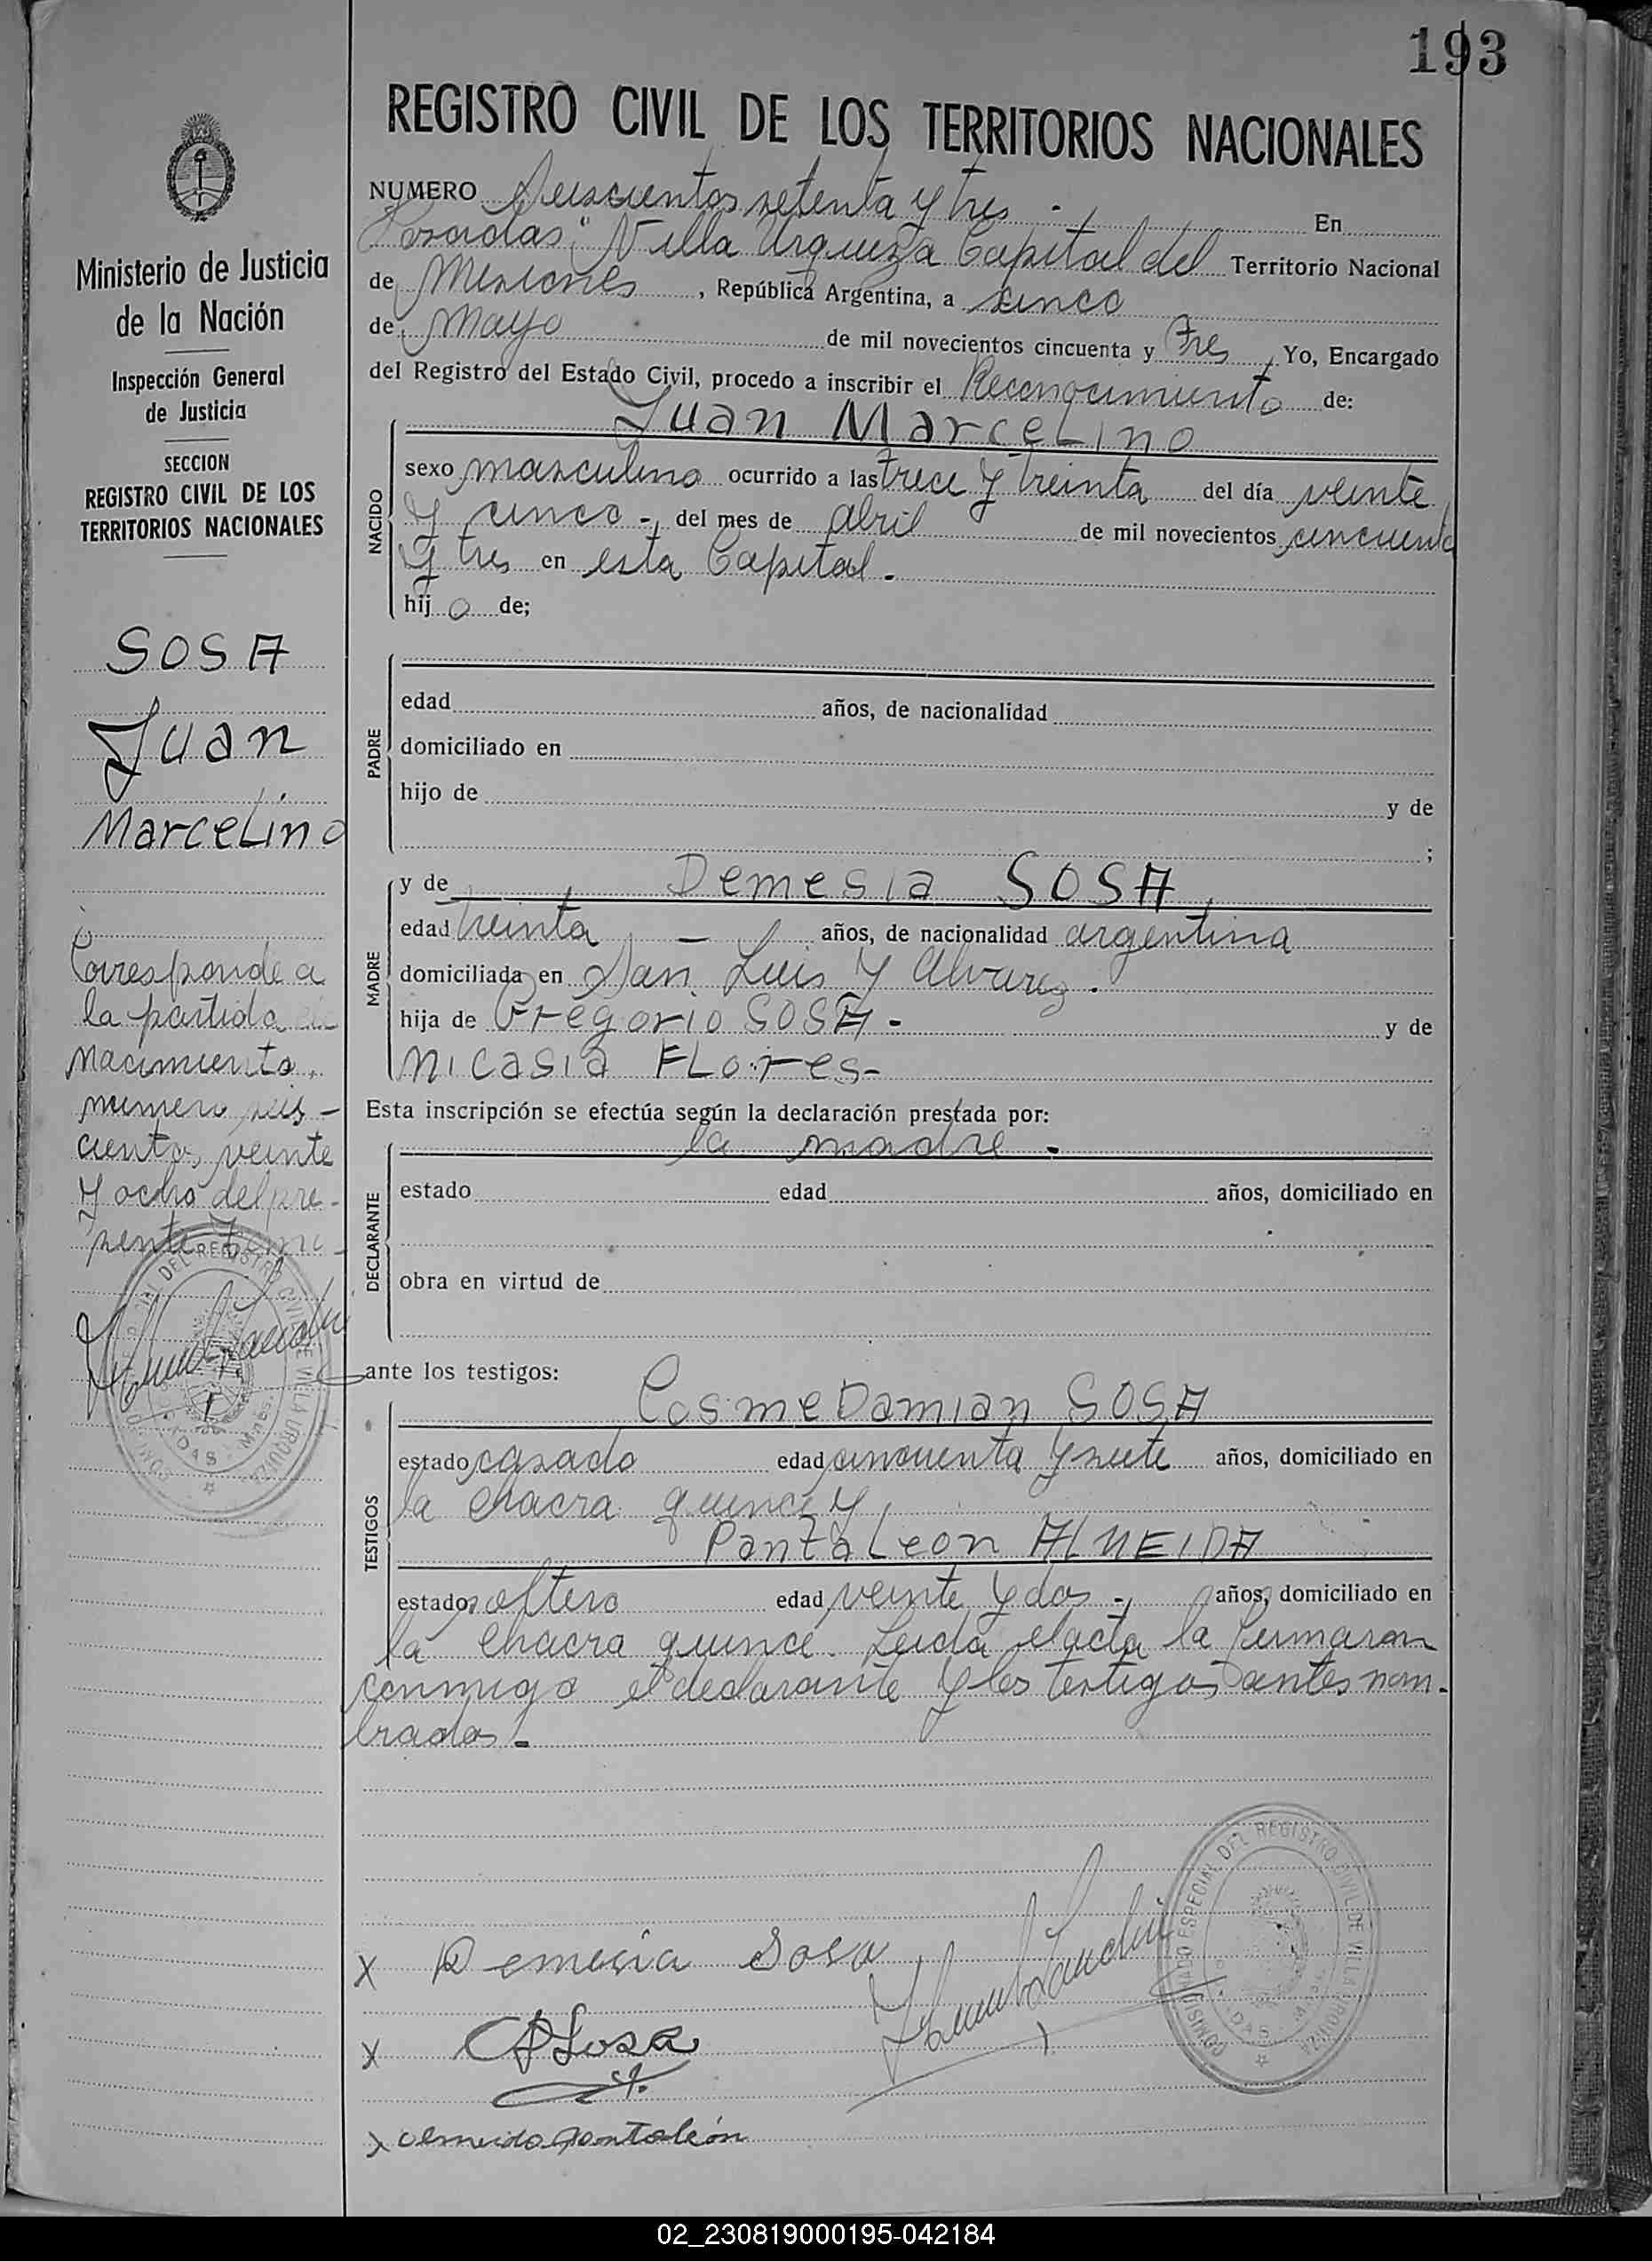 193
REGISTRO CIVIL DE LOS TERRITORIOS NACIONALES
NUMERO Seiscientos setenta y tres - En
Posadas "Villa Urquiza Capital del Territorio Nacional
de Misiones, República Argentina, a cinco
de Mayo de mil novecientos cincuenta y tres, Yo, Encargado
del Registro del Estado Civil, procedo a inscribir el Reconocimiento de:
Juan Marcelino
NACIDO
sexo masculino ocurrido a las trece y treinta del día veinte
y cinco -, del mes de abril de mil novecientos cincuenta
y tres en esta Capital.
hij o de;
PADRE
edad años, de nacionalidad
domiciliado en
hijo de y de
;
MADRE
y de Demesia SOSA,
edad treinta - años, de nacionalidad argentina
domiciliada en San Luis y Alvarez.
hija de Gregorio SOSA - y de
Nicasia FLores-
Esta inscripción se efectúa según la declaración prestada por:
la madre.
DECLARANTE
estado edad años, domiciliado en
obra en virtud de
ante los testigos:
Cosme Damian SOSA
TESTIGOS
estado casado edad cincuenta y siete años, domiciliado en
la chacra quince y
Pantaleon ALMEIDA
estado soltero edad veinte y dos -, años, domiciliado en
la chacra quince. Leida el acta la firmaron
conmigo el declarante y los testigos antes nom-
brados.-
X Demecia Sosa
X Sosa
X almeida pantaleón
COMISIONADO ESPECIAL DEL REGISTRO CIVIL DE VILLA URQUIZA
Ministerio de Justicia
de la Nación
Inspección General
de Justicia
SECCION
REGISTRO CIVIL DE LOS
TERRITORIOS NACIONALES
SOSA
Juan
Marcelino
Corresponde a
la partida de
Nacimiento,
numero seis-
cientos veinte
y ocho del pre-
sente Tomo-
DEL REGISTRO CIVIL DE VILLA URQUIZA
02_230819000195-042184